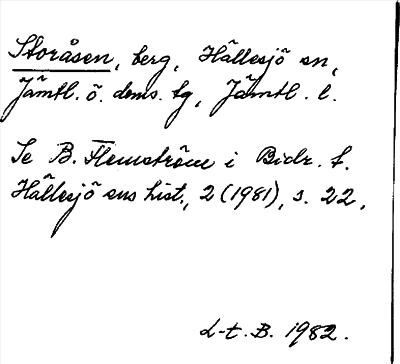 Storåsen, berg, Hällesjö sn,
Jämtl. ö. doms. tg, Jämtl. l.
Se B. Flemström i Bidr. t.
Hällesjö sns hist., 2 (1981), s. 22.
L-t. B. 1982.